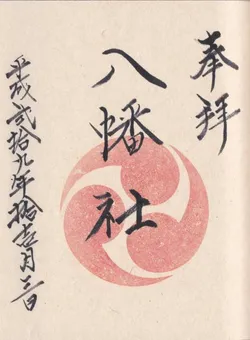 奉拝
八幡社
平成弐拾九年拾壱月三日